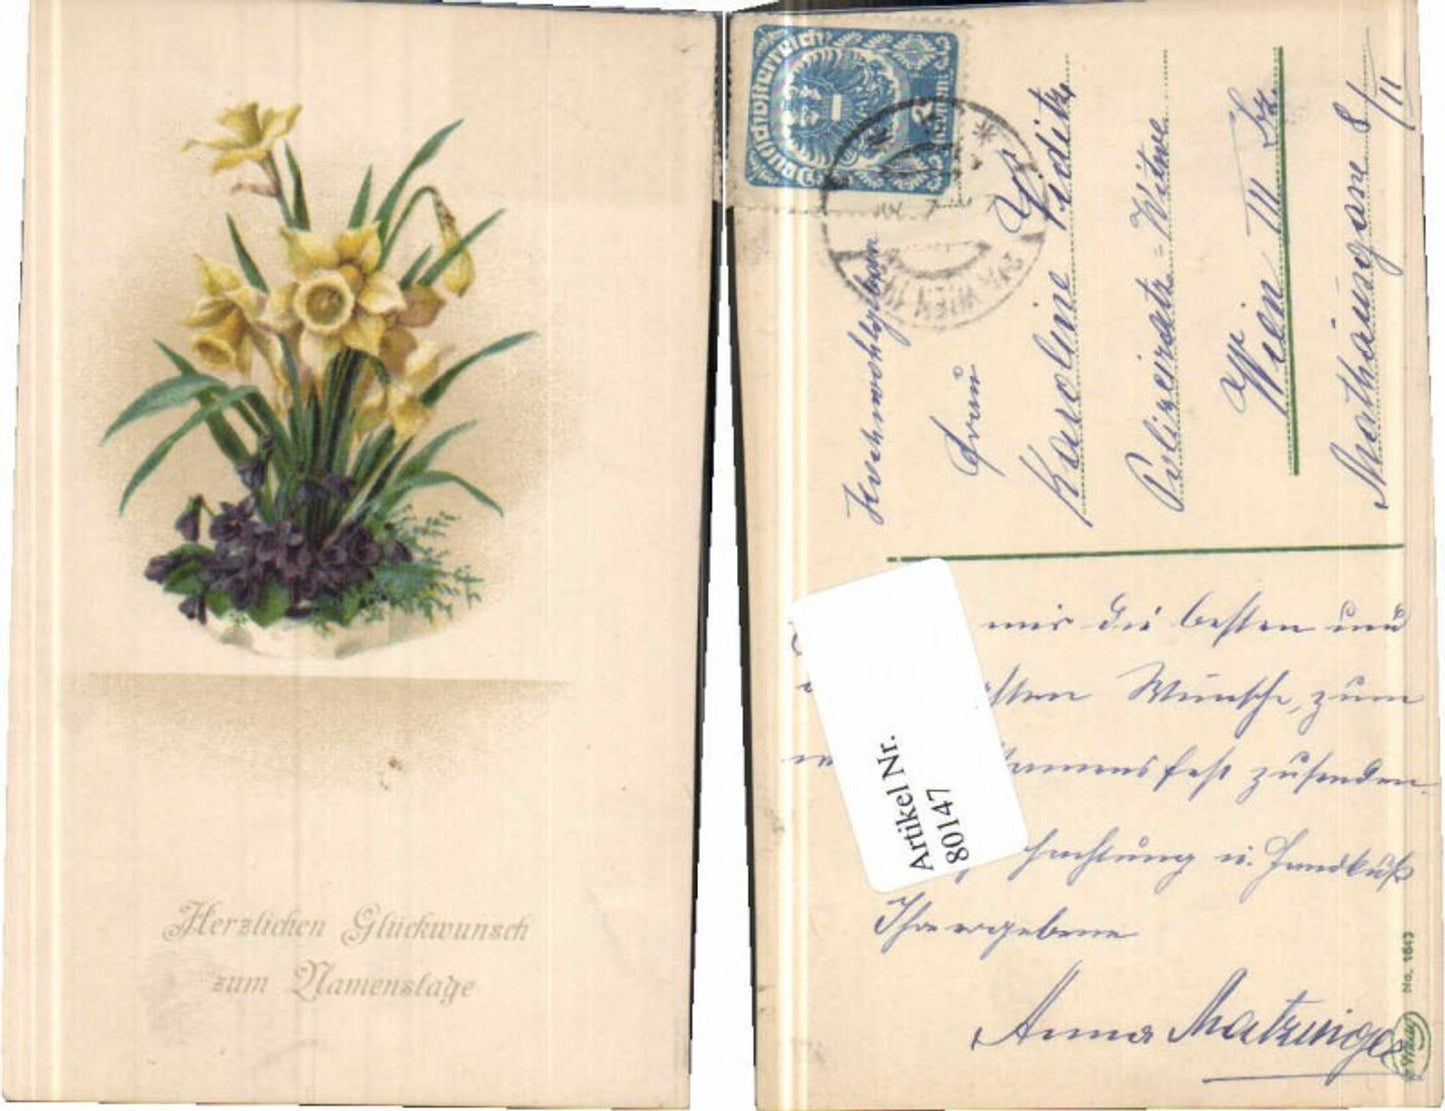 Herzlichen Glückwunsch
zum Namenstage
Deutschösterreich
2 Kronen
WIEN
Hochwohlgeboren
Frau
Karoline
Polizeirats-Witwe
Wien III Bz.
Mathäusgasse 8/11
mir die besten und
Wünsche, zum
Namensfest zusenden.
Hochachtung u. Handkuß
Ihre ergebene
Anna Matzinger
Artikel Nr.
80147
No. 1643